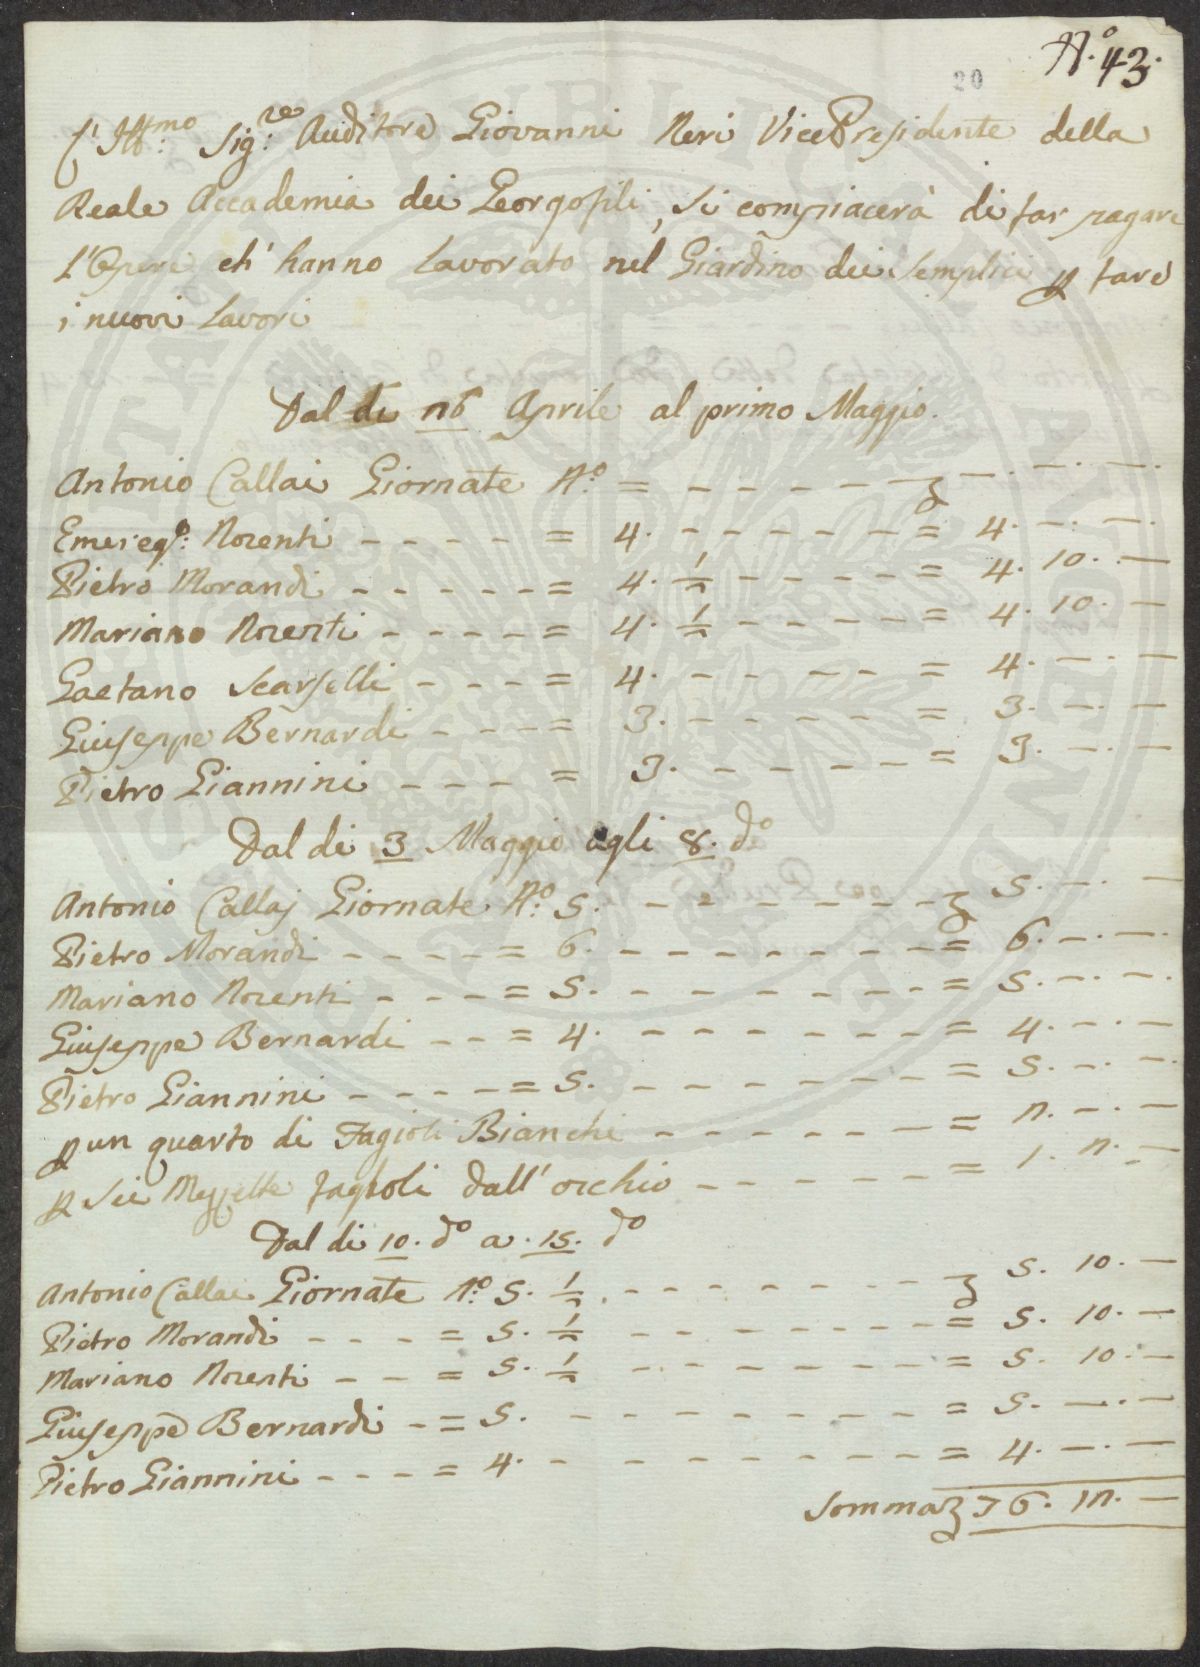 N.º 43.
20
L' Ill.mo Sig.re Auditore Giovanni Neri Vice Presidente della
Reale Accademia dei Georgofili, si compiacerà di far pagare
L'Opere ch' hanno Lavorato nel Giardino dei Semplici p fare
i nuovi Lavori
Dal di 26 Aprile al primo Maggio.
Antonio Callai Giornate N.º = - - - - - - £ —. —. —.
Nocenti - - - - - = 4. - - - - - - = 4. —. —.
Pietro Morandi - - - - - = 4. 1/2 - - - - - = 4. 10. —
Mariano Nocenti - - - - - = 4. 1/2 - - - - - = 4. 10. —
Gaetano Scarselli - - - - = 4. - - - - - = 4. —. —
Giuseppe Bernardi - - - - = 3. - - - - - = 3. —. —
Pietro Giannini - - - - = 3. - - - - - = 3. —. —
Dal di 3 Maggio agli 8. dº
Antonio Callaj Giornate N.º 5. - - - - - - £ 5. —. —
Pietro Morandi - - - - - = 6. - - - - - - - = 6. —. —
Mariano Nocenti - - - = 5. - - - - - - - = 5. —. —.
Giuseppe Bernardi - - = 4. - - - - - - - = 4. —. —
Pietro Giannini - - - - = 5. - - - - - - = 5. —. —.
p un quarto di Fagioli Bianchi - - - - - - = 2. —. —
p sei Mezzette fagioli dall' occhio - - - - - = 1. 2. —
Dal di 10. dº a. 15. dº
Antonio Callai Giornate N.º 5. 1/2. - - - - - - £ 5. 10. —
Pietro Morandi - - - - = 5. 1/2 - - - - - - = 5. 10. —
Mariano Nocenti - - = 5. 1/2 - - - - - - = 5. 10. —
Giuseppe Bernardi - = 5. - - - - - - - = 5. —. —
Pietro Giannini - - - - = 4. - - - - - - - = 4. —. —
Somma £ 76. 12. —
PROSPERITATI PVBLICAE AVGENDAE